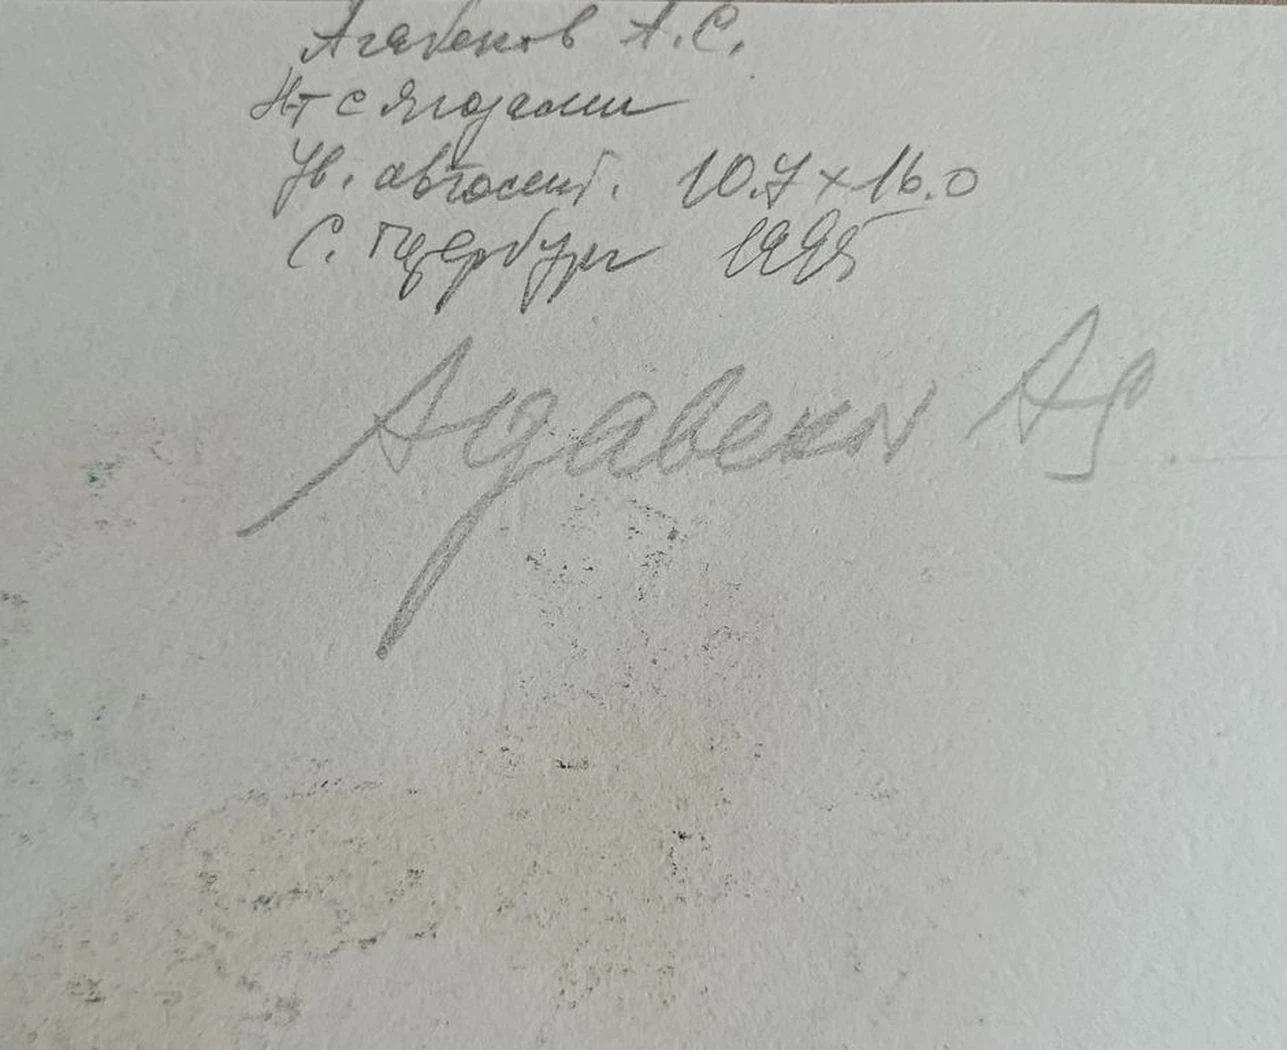 Агабеков А.С.
Н-т с ягодами
Цв. автолит. 10.7 × 16.0
С. Петербург 1995
Агабеков